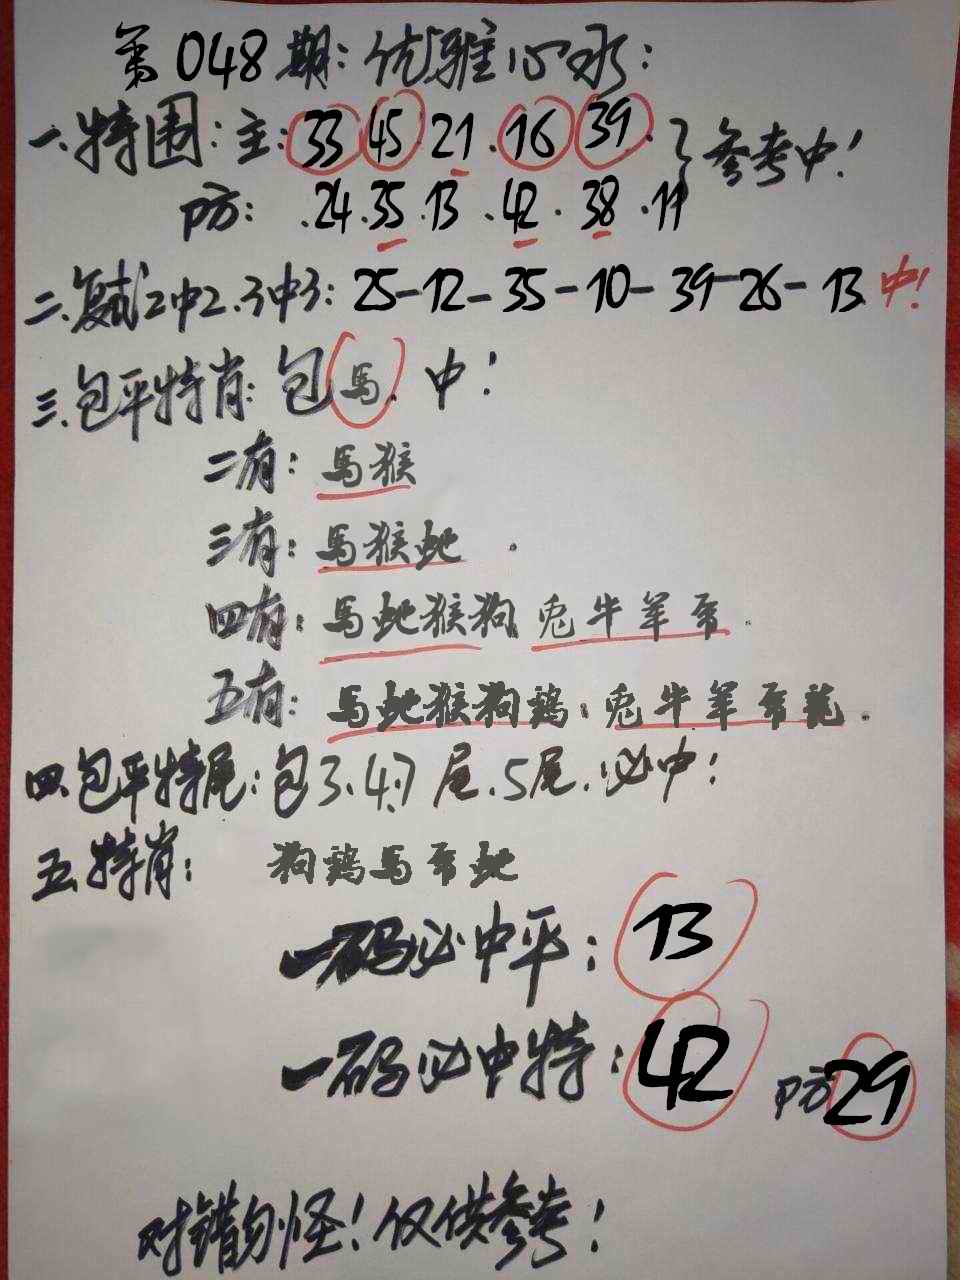 第048期:优雅心水:
一.特围:主:33.45.21.16.39.}参考中!
防:.24.35.13.42.38.11
二.复式2中2.3中3:25-12-35-10-39-26-13中!
三.包平特肖:包馬.中!
二有:馬猴
三有:馬猴蛇.
四有:馬蛇猴狗 兔牛羊.
五有:馬蛇猴狗鷄.兔牛羊龍.
四.包平特尾:包3.4.7尾.5尾.必中!
五.特肖:狗鷄馬蛇
一码必中平:13
一码必中特:42 防29
对错勿怪!仅供参考!